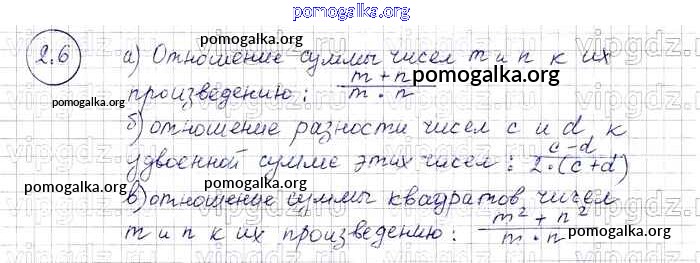 pomogalka.org
2.6 а) Отношение суммы чисел m и n к их
произведению: (m + n)/(m · n)
б) отношение разности чисел c и d к
удвоенной сумме этих чисел: (c - d)/(2 · (c + d))
в) отношение суммы квадратов чисел
m и n к их произведению: (m² + n²)/(m · n)
pomogalka.org
pomogalka.org
pomogalka.org
pomogalka.org
pomogalka.org
pomogalka.org
vipgdz.ru